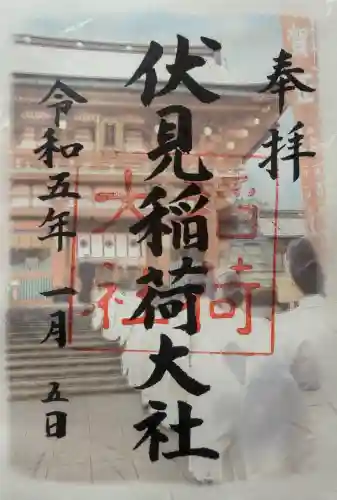 奉拝
伏見稲荷大社
令和五年 一月 五日